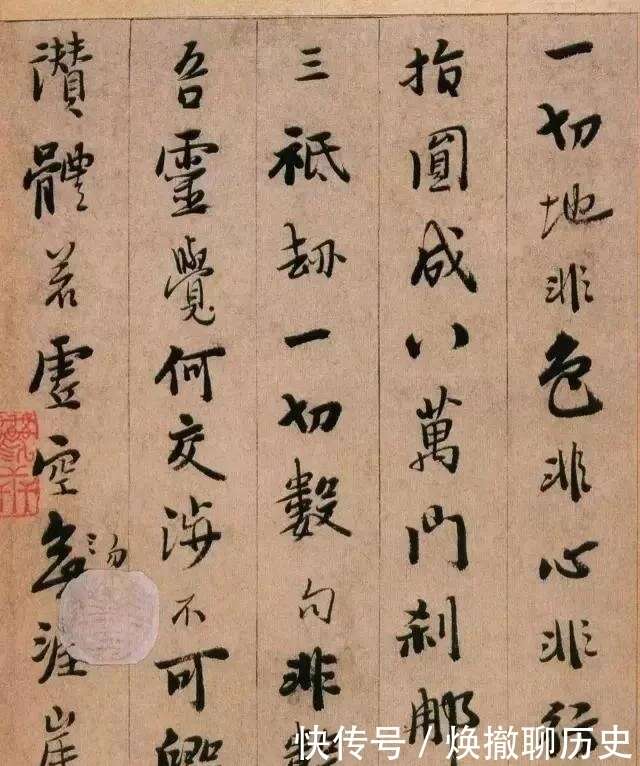 一切地非色非心非行
指圓成八萬門刹那
三祇劫一切數句非數
吾靈覺何交涉不可毀
讚體若虛空
勿
涯岸
快传号/焕撤聊历史